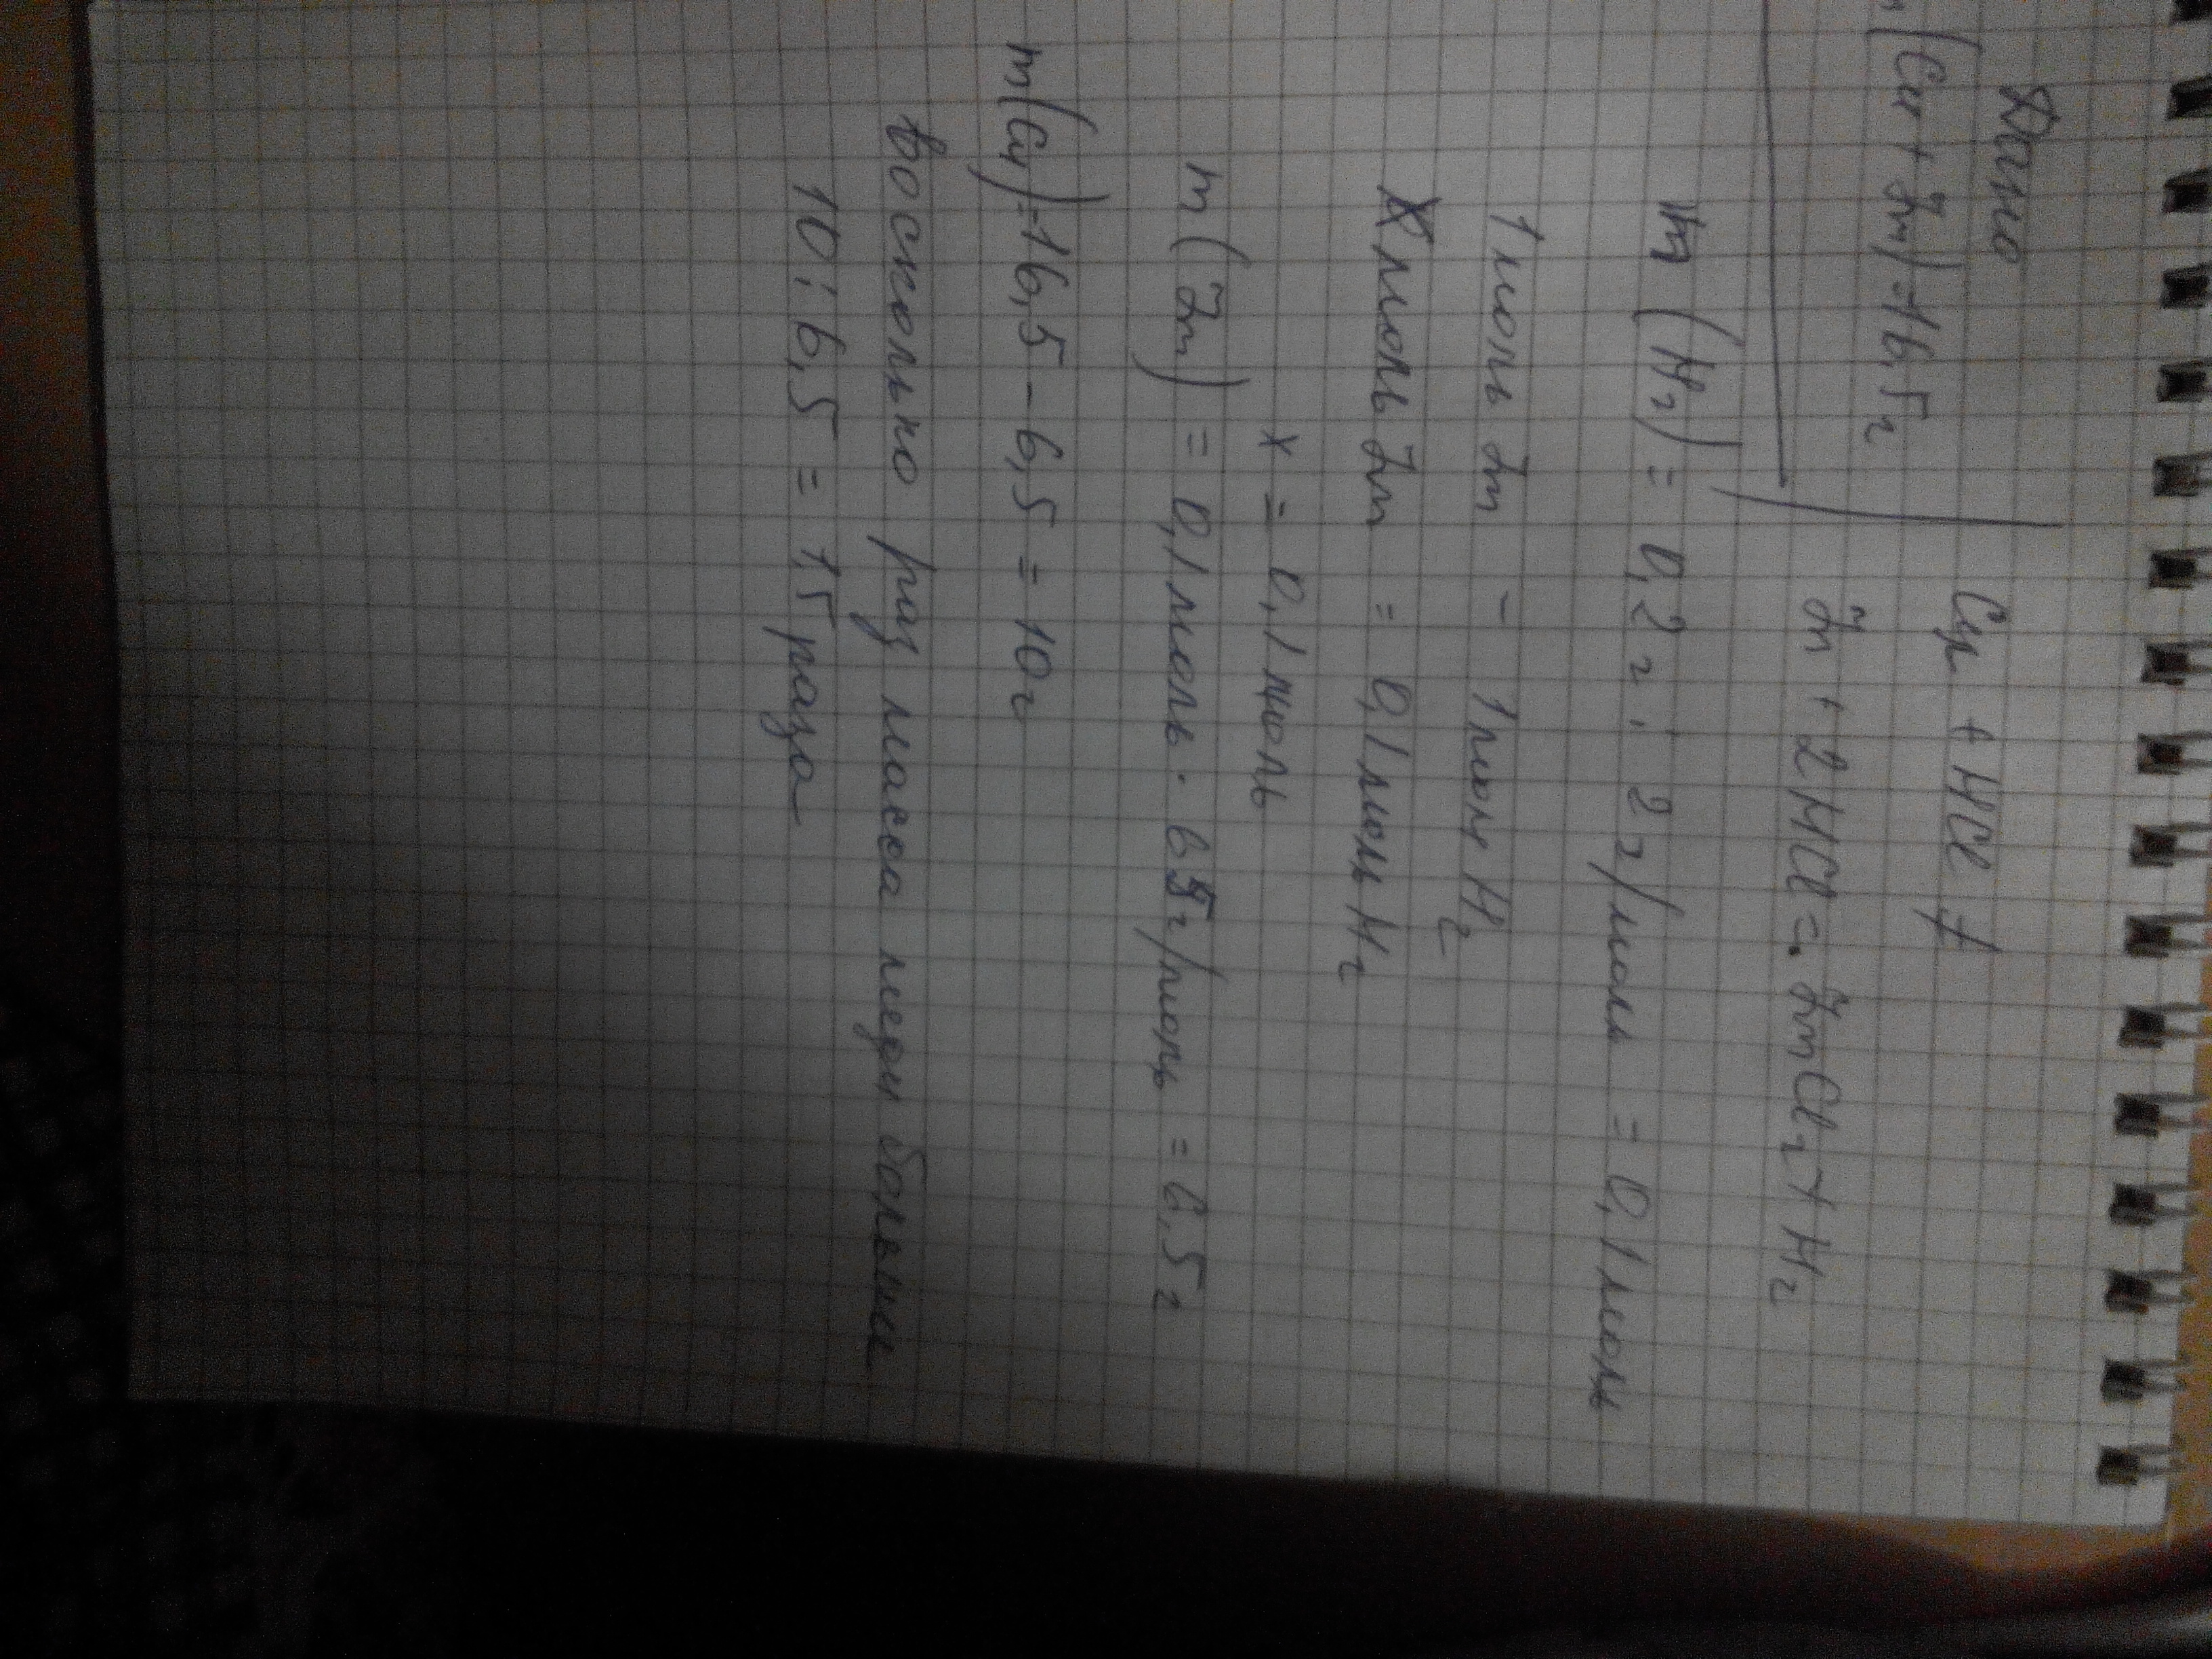 Дано
m(Cu + Zn) = 16,5 г
Cu + HCl ≠
Zn + 2HCl = ZnCl2 + H2
m (H2) = 0,2 г : 2 г/моль = 0,1 моль
1 моль Zn - 1 моль H2
X моль Zn = 0,1 моль H2
x = 0,1 моль
m (Zn) = 0,1 моль · 65 г/моль = 6,5 г
m(Cu) = 16,5 - 6,5 = 10 г
во сколько раз масса меди больше
10 : 6,5 = 1,5 раза